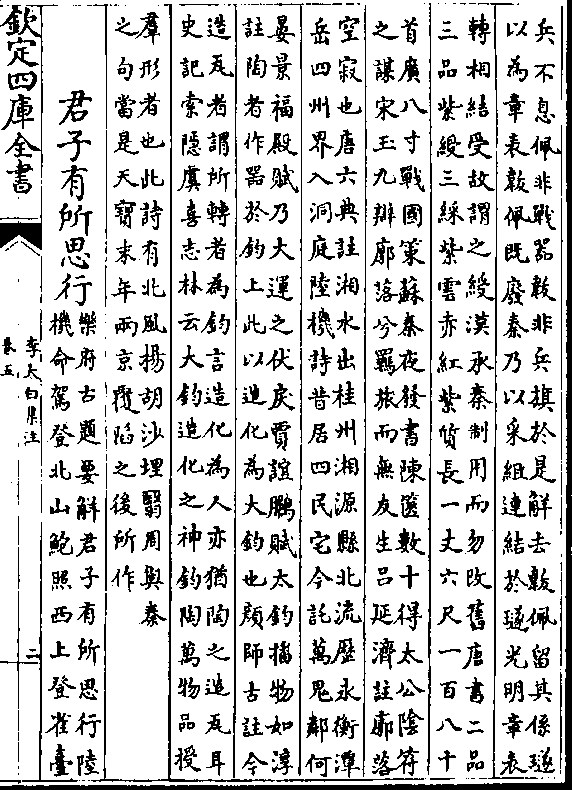 兵不息佩非戰器韍非兵旗於是解去韍佩留其係璲
以為章表韍佩既廢秦乃以采組連結於璲光明章表
轉相結受故謂之綬漢承秦制用而勿改舊唐書二品
三品紫綬三綵紫雲赤紅紫質長一丈六尺一百八十
首廣八寸戰國策蘇秦夜發書陳篋數十得太公陰符
之謀宋玉九辯廓落兮羈旅而無友生呂延濟註廓落
空寂也唐六典註湘水出桂州湘源縣北流歷永衡潭
岳四州界入洞庭陸機詩昔居四民宅今託萬鬼鄰何
晏景福殿賦乃大運之伏戾賈誼鵩賦大鈞播物如淳
註陶者作器於鈞上此以造化為大鈞也顏師古註今
造瓦者謂所轉者為鈞言造化為人亦猶陶之造瓦耳
史記索隱虞喜志林云大鈞造化之神鈞陶萬物品授
羣形者也此詩有北風揚胡沙埋翳周與秦
之句當是天寶末年兩京覆陷之後所作
君子有所思行
樂府古題要解君子有所思行陸
機命駕登北山鮑照西上登雀臺
欽定四庫全書
李太白集注
卷五
二